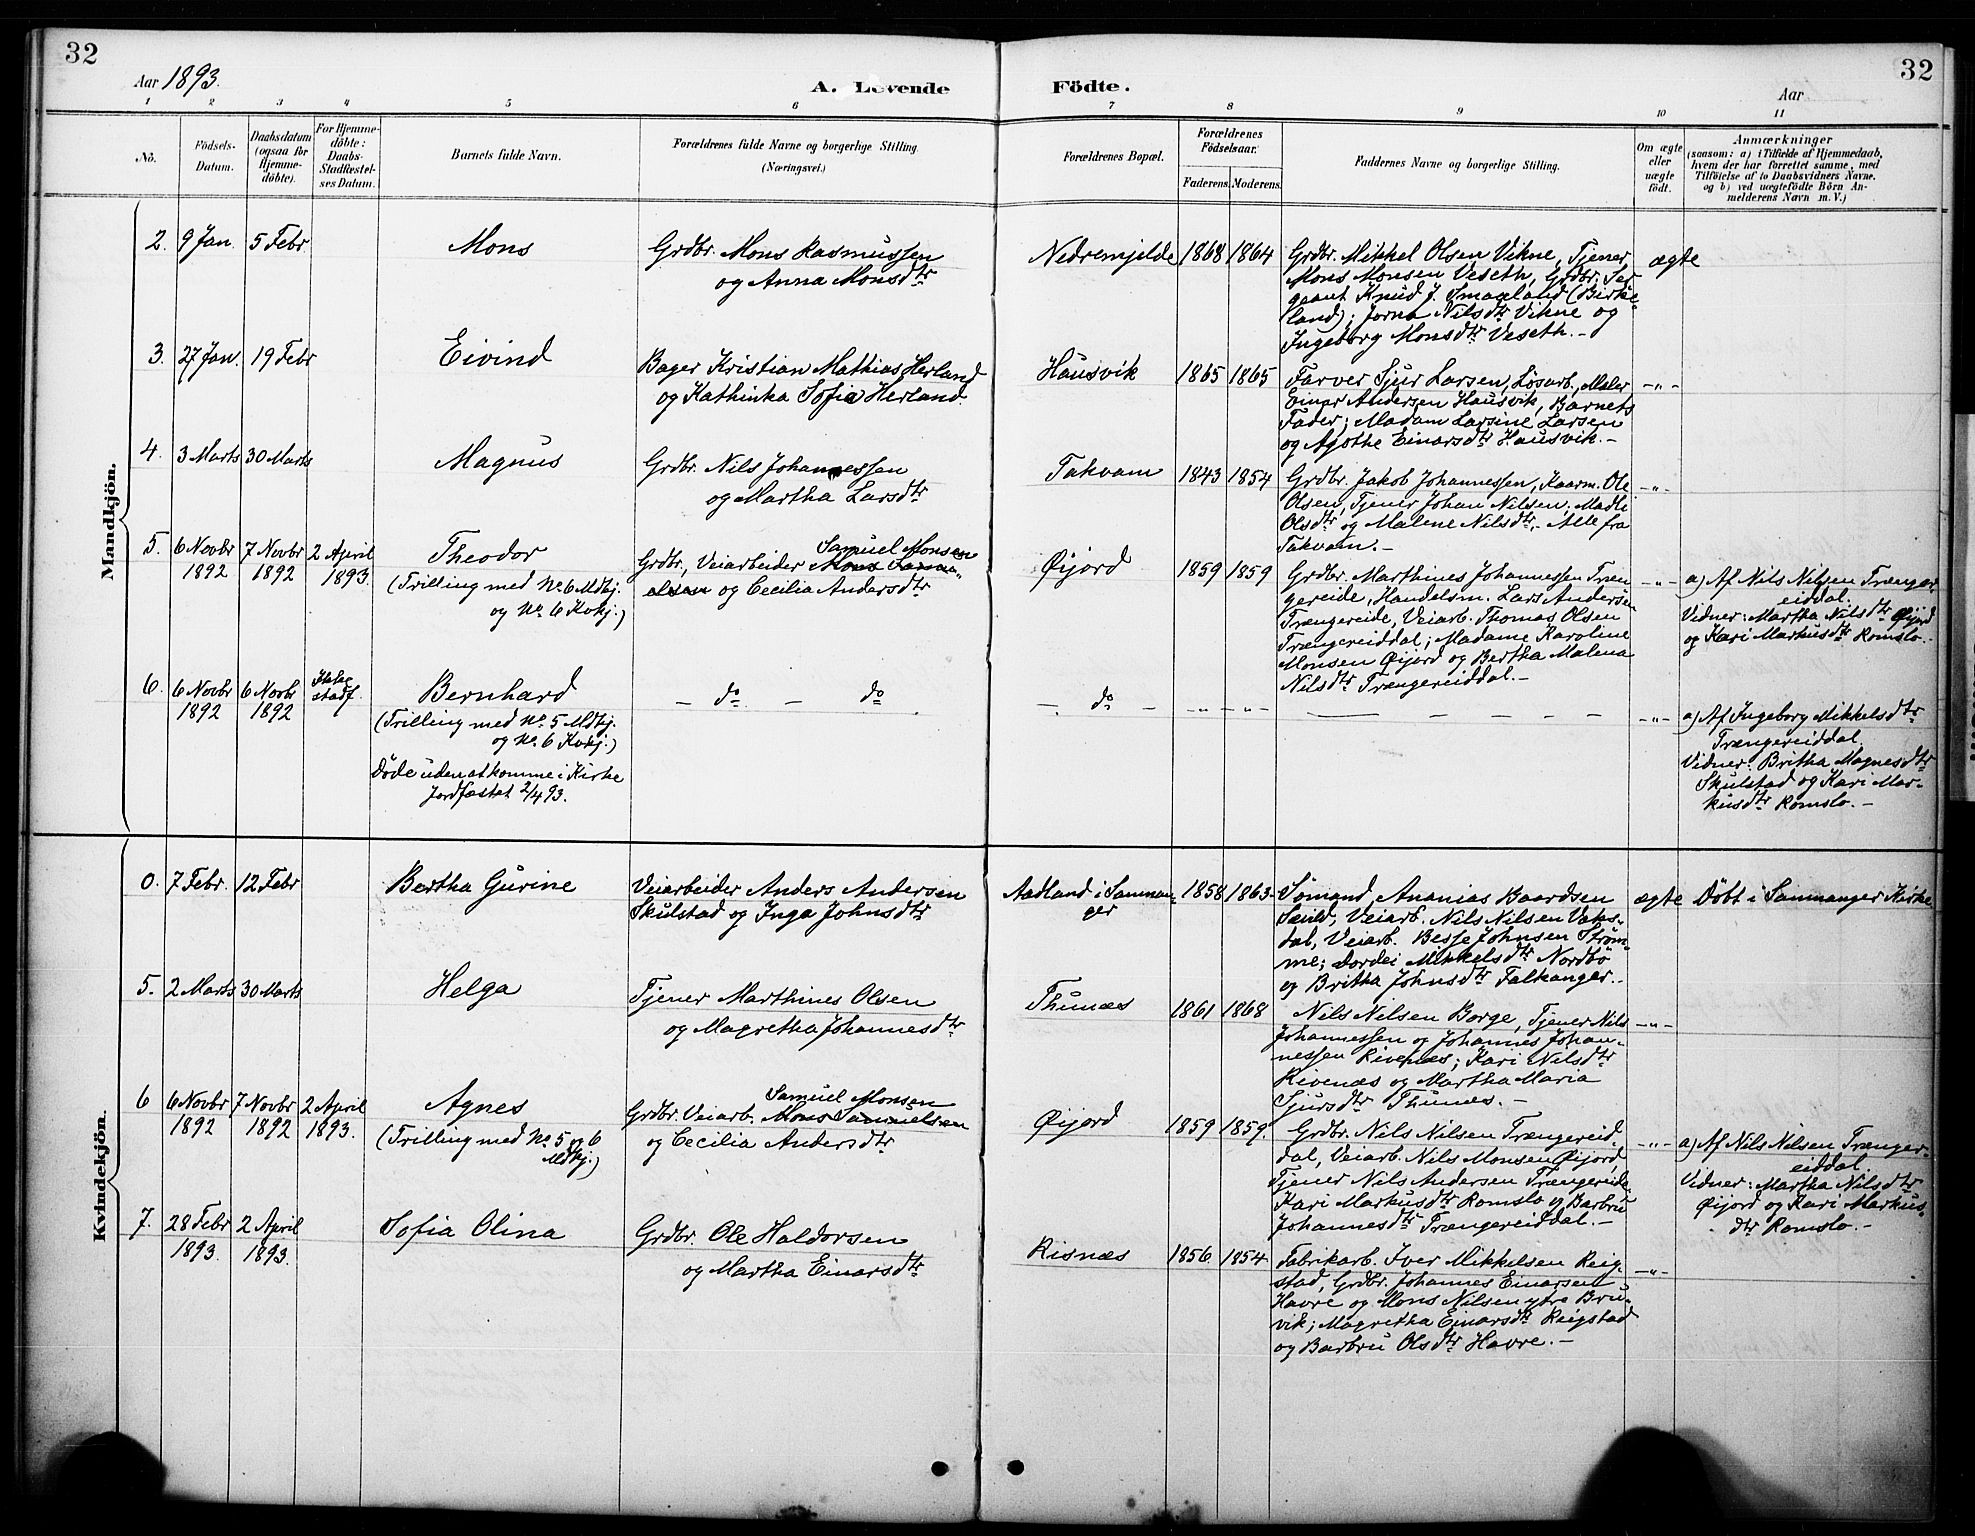 32
32
Aar 1893.
A. Levende Födte.
Aar
1 2 3 4 5 6 7 8 9 10 11
No.
Födsels-
Datum.
Daabsdatum
(ogsaa for
Hjemme-
döbte).
For Hjemme-
döbte:
Daabs-
Stadfæstel-
ses Datum.
Barnets fulde Navn.
Forældrenes fulde Navne og borgerlige Stilling.
(Næringsvei.)
Forældrenes Bopæl.
Forældrenes
Födselsaar.
Faderens. Moderens.
Faddernes Navne og borgerlige Stilling.
Om ægte
eller
uægte
födt.
Anmærkninger
(saasom: a) i Tilfælde af Hjemmedaab,
hvem der har forrettet samme, med
Tilföielse af to Daabsvidners Navne.
og b) ved uægtefödte Börn An-
melderens Navn m. V.)
Mandkjön.
2. 9 Jan. 5 Febr
Mons
Grdbr. Mons Rasmussen
og Anna Monsdtr
Nedremjelde 1868 1864
Grdbr. Mikkel Olsen Vikne, Tjener
Mons Monsen Veseth, Grdbr. Ser-
geant Knud J. Smaaland (Birke-
land); Jorna Nilsdtr Vikne og
Ingeborg Monsdtr Veseth.-
ægte
3. 27 Jan. 19 Febr
Eivind
Bager Kristian Mathias Herland
og Kathinka Sofie Herland.
Hausvik 1865 1865
Farver Sjur Larsen, Løsarb., Maler
Einar Andersen Hausvik, Barnets
Fader; Madam Larsine Larsen
og Agothe Einarsdtr Hausvik.-
-"-
4. 3 Marts 30 Marts
Magnus
Grdbr. Nils Johannessen
og Martha Larsdtr
Takvam 1843 1854
Grdbr. Jakob Johannessen, Kaarm. Ole
Olsen, Tjener Johan Nilsen, Madli
Olsdtr og Malene Nilsdtr. Alle fra
Takvam.-
-"-
5. 6 Novbr 7 Novbr 2 April
1892 1892 1893.
Theodor
(Trilling med No. 6 Mdkj.
og No. 6 Kvkj.)
Samuel Monsen
Grdbr., Veiarbeider Mons Samu-
elsen og Cecilia Andersdtr
Øijord 1859 1859
Grdbr. Marthines Johannessen Træn-
gereide, Handelsm. Lars Andersen
Trængereide, Veiarb. Thomas Olsen
Trængereiddal; Madame Karoline
Monsen Øijord og Bertha Malena
Nilsdtr Trængereiddal.-
-"-
a) Af Nils Nilsen Trænger-
eiddal.
Vidner: Martha Nilsdtr Øijord
og Kari Markusdtr Romslo.-
6. 6 Novbr 6 Novbr Ikke
1892 1892 stadf.
Bernhard
(Trilling med No. 5 Mdkj.
og No. 6 Kvkj.)
Døde uden at komme i Kirke
Jordfæstet 2/4 93.
- do - do
- do - -"- -"-
-"-
a) Af Ingeborg Mikkelsdtr
Trængereiddal.
Vidner: Britha Magnesdtr
Skulstad og Kari Mar-
kusdtr Romslo.-
Kvindekjön.
0. 7 Febr. 12 Febr
Bertha Gurine
Veiarbeider Anders Andersen
Skulstad og Inga Johnsdtr
Aadland i Samnan-
ger
1858 1863
Sömand Ananias Baardsen
Sæld, Veiarb. Nils Nilsen Vaks-
dal, Veiarb. Besse Johnsen Strøm-
me; Dordei Mikkelsdtr Nordbö
og Britha Johnsdtr Falkanger..
ægte Döbt i Samnanger Kirke
5. 2 Marts 30 Marts
Helga
Tjener Marthines Olsen
og Magretha Johannesdtr
Thunæs 1861 1868
Nils Nilsen Borge, Tjener Nils
Johannessen og Johannes Johan-
nessen Rivenæs; Kari Nilsdtr
Rivenæs og Martha Maria
Sjursdtr Thunæs.-
-"-
6 6 Novbr 7 Novbr 2 April
1892 1892 1893.
Agnes
(Trilling med No. 5 og 6
Mdkj.)
Samuel Monsen
Grdbr. Veiarb. Mons Samuelsen
og Cecilia Andersdtr
Øijord 1859 1859.
Grdbr. Nils Nilsen Trængereid-
dal, Veiarb. Nils Monsen Øijord,
Tjener Nils Andersen Trængereide,
Kari Markusdtr Romslo og Barbru
Johannesdtr Trængereiddal.-
-"-
a) Af Nils Nilsen Trænger-
eiddal
Vidner: Martha Nilsdtr
Øijord og Kari Markus-
dtr Romslo.-
7. 28 Febr 2 April
1893 1893.
Sofia Olina
Grdbr. Ole Haldorsen
og Martha Einarsdtr
Risnæs 1856 1854
Fabrikarb. Iver Mikkelsen Reig-
stad, Grdbr. Johannes Einarsen
Havre og Mons Nilsen ytre Bru-
vik; Magretha Einarsdtr Reigstad
og Barbru Olsdtr Havre.-
-"-